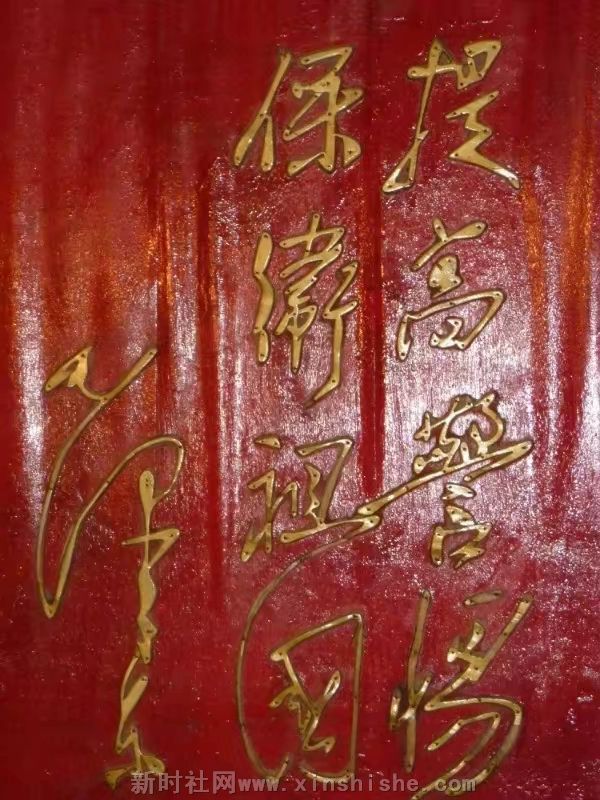 提高警惕
保衛祖国
毛泽东
新时社网www.xinshishe.com